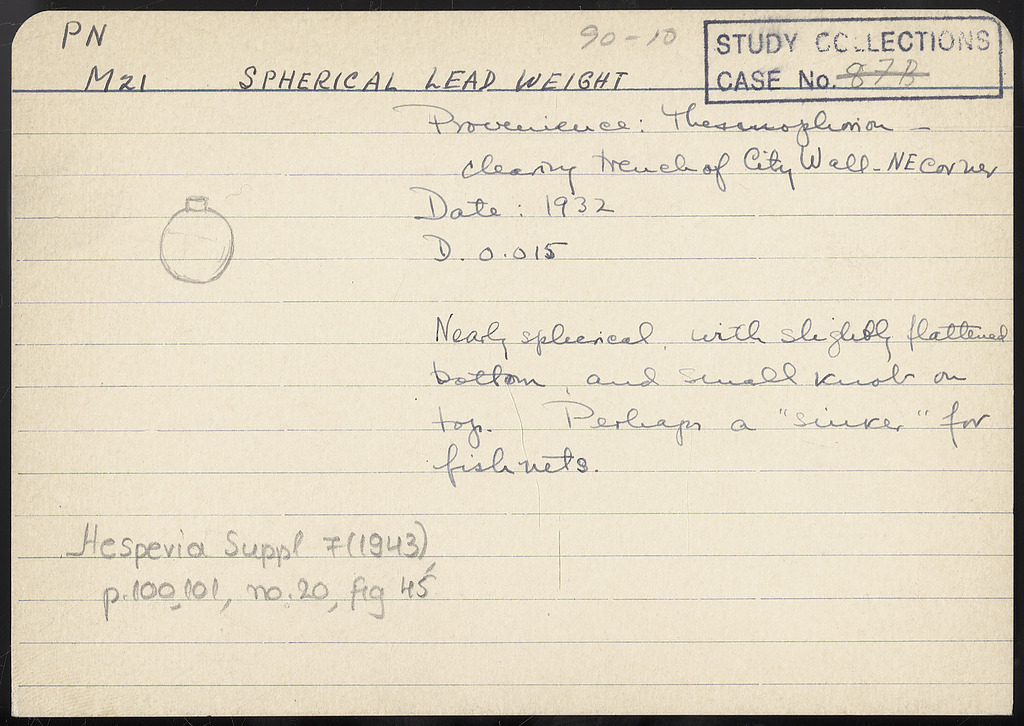 PN
90-10
STUDY COLLECTIONS
CASE No. 87B
M21 SPHERICAL LEAD WEIGHT
Provenience: Thesmophorion -
clearing trench of City Wall - NE Corner
Date: 1932
D. 0.015
Nearly spherical, with slightly flattened
bottom, and small knob on
top. Perhaps a "sinker" for
fish nets.
Hesperia Suppl 7 (1943),
p. 100, 101, no. 20, fig 45